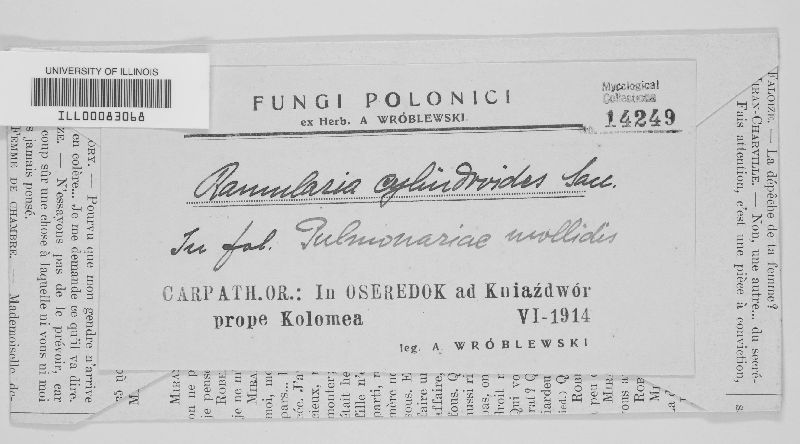 UNIVERSITY OF ILLINOIS
ILL00083068
FUNGI POLONICI
ex Herb. A WRÓBLEWSKI.
Mycological
Collections
no. 14249
Ramularia cylindroides Sacc.
In fol. Pulmonariae mollidis
CARPATH.OR.: In OSEREDOK ad Kniaźdwór
prope Kolomea VI-1914
leg. A WRÓBLEWSKI
FALOIZE. — La dépêche de ta femme?
MIRAN-CHARVILLE. — Non, une autre... du secré-
Fais attention, c'est une pièce à conviction,
ORY. — Pourvu que mon gendre n'arrive
en colère... Je me demande ce qu'il va dire.
ZE. — N'essayons pas de le prévoir, car
coup sûr une chose à laquelle ni vous ni moi
s jamais pensé.
FEMME DE CHAMBRE. — Mademoiselle de-